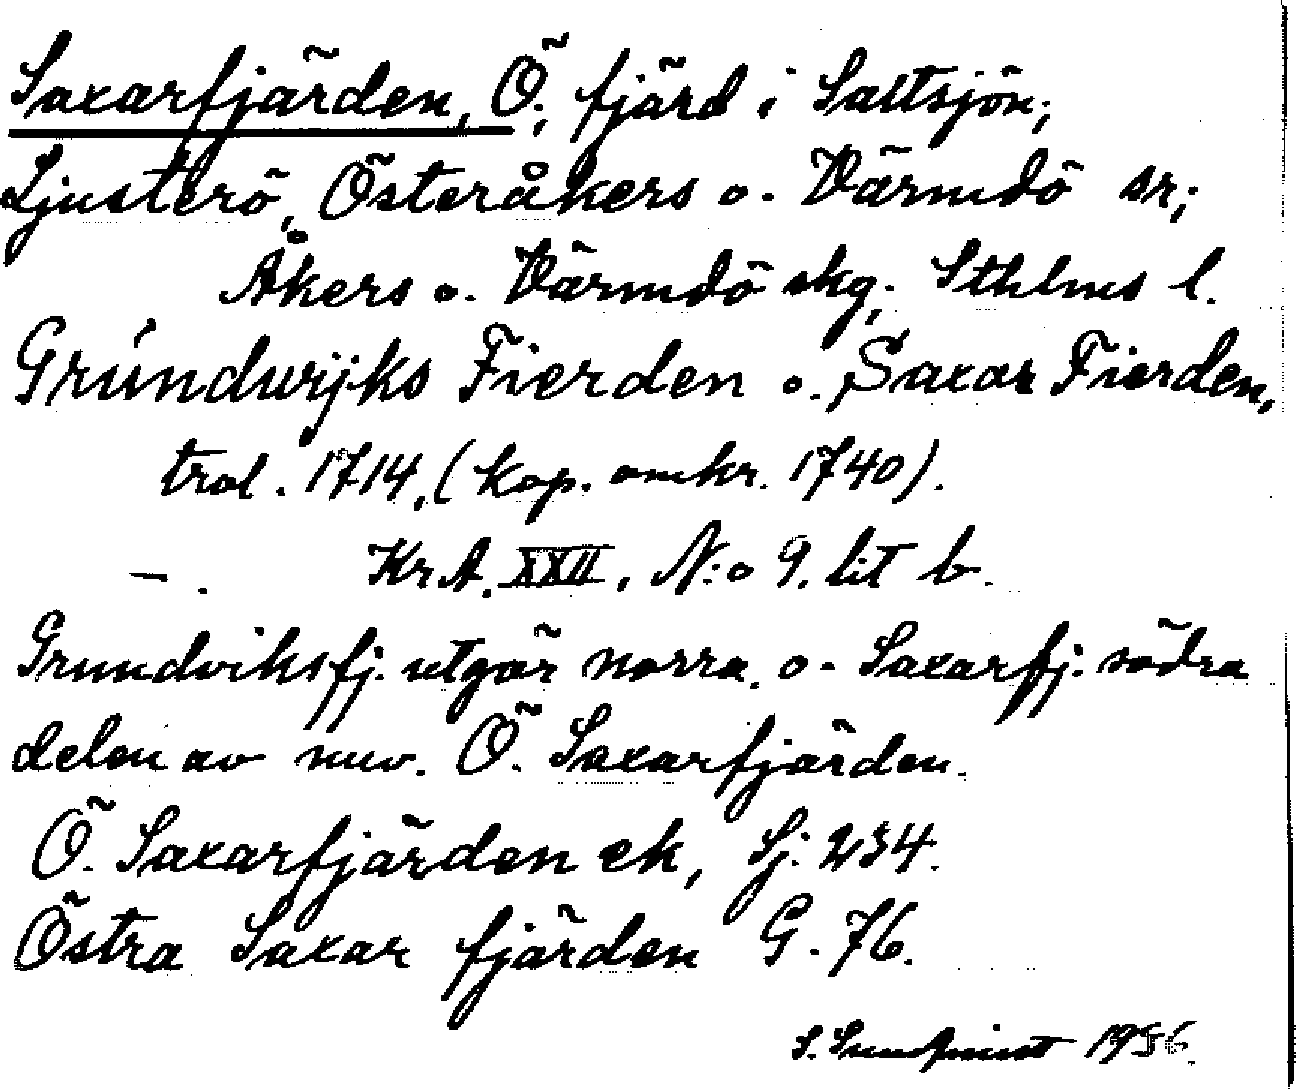 Saxarfjärden, Ö., fjärd i Saltsjön;
Ljusterö, Österåkers o. Värmdö sn;
Åkers o. Värmdö skg. Sthlms l.
Grundwijks Fierden o. Saxar Fierden,
trol. 1714, (kop. omkr. 1740).
—. Kr.A. XXII, N:o 9. lit b.
Grundviksfj. utgör norra o. Saxarfj. södra
delen av nuv. Ö. Saxarfjärden.
Ö. Saxarfjärden ek, Sj. 234.
Östra Saxar fjärden G. 76.
S. Sundqvist 1936